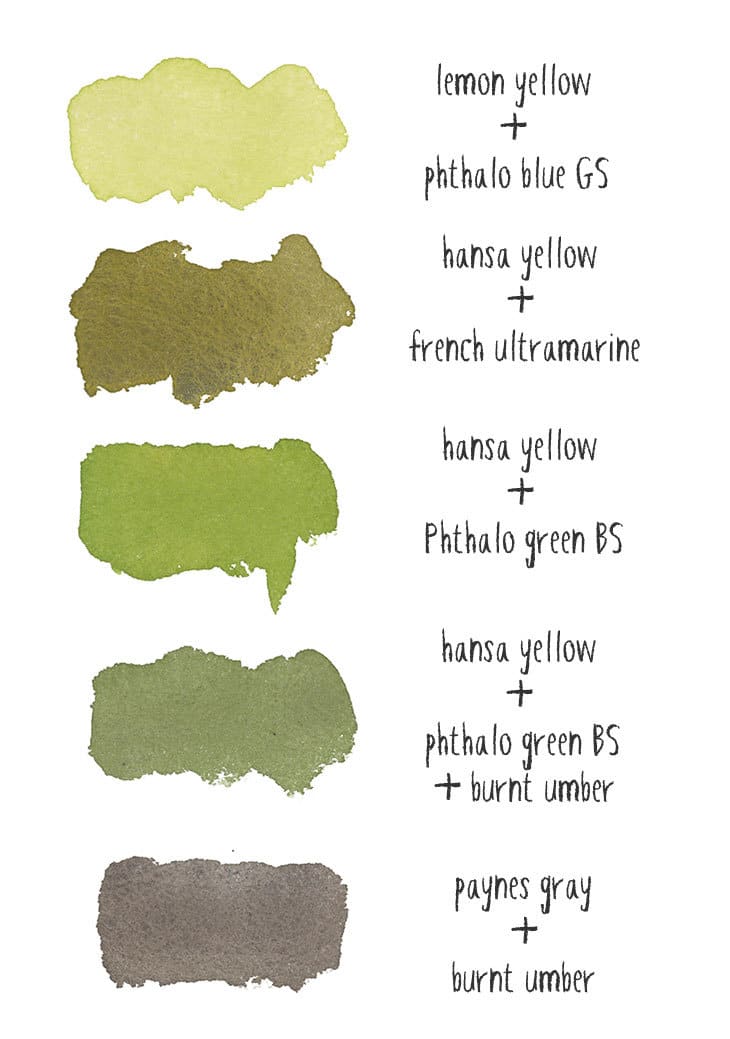 lemon yellow
+
phthalo blue GS
hansa yellow
+
french ultramarine
hansa yellow
+
Phthalo green BS
hansa yellow
+
phthalo green BS
+ burnt umber
paynes gray
+
burnt umber